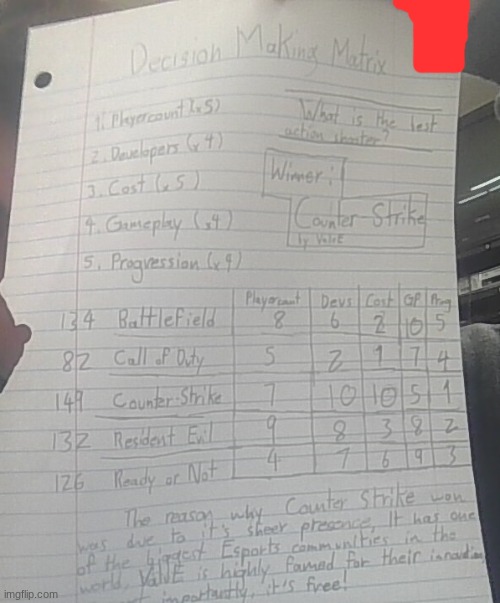 Decision Making Matrix
1. Playercount (x5)
2. Developers (x4)
3. Cost (x5)
4. Gameplay (x4)
5. Progression (x4)
What is the best
action shooter?
Winner:
Counter-Strike
by ValvE
Playercount Devs Cost GP Prog
134 Battlefield 8 6 2 10 5
82 Call of Duty 5 2 1 7 4
149 Counter-Strike 7 10 10 5 1
132 Resident Evil 9 8 3 8 2
126 Ready or Not 4 7 6 9 3
The reason why Counter Strike won
was due to it's sheer presence, It has one
of the biggest Esports communities in the
world. ValvE is highly famed for their
importantly, it's free!
imgflip.com